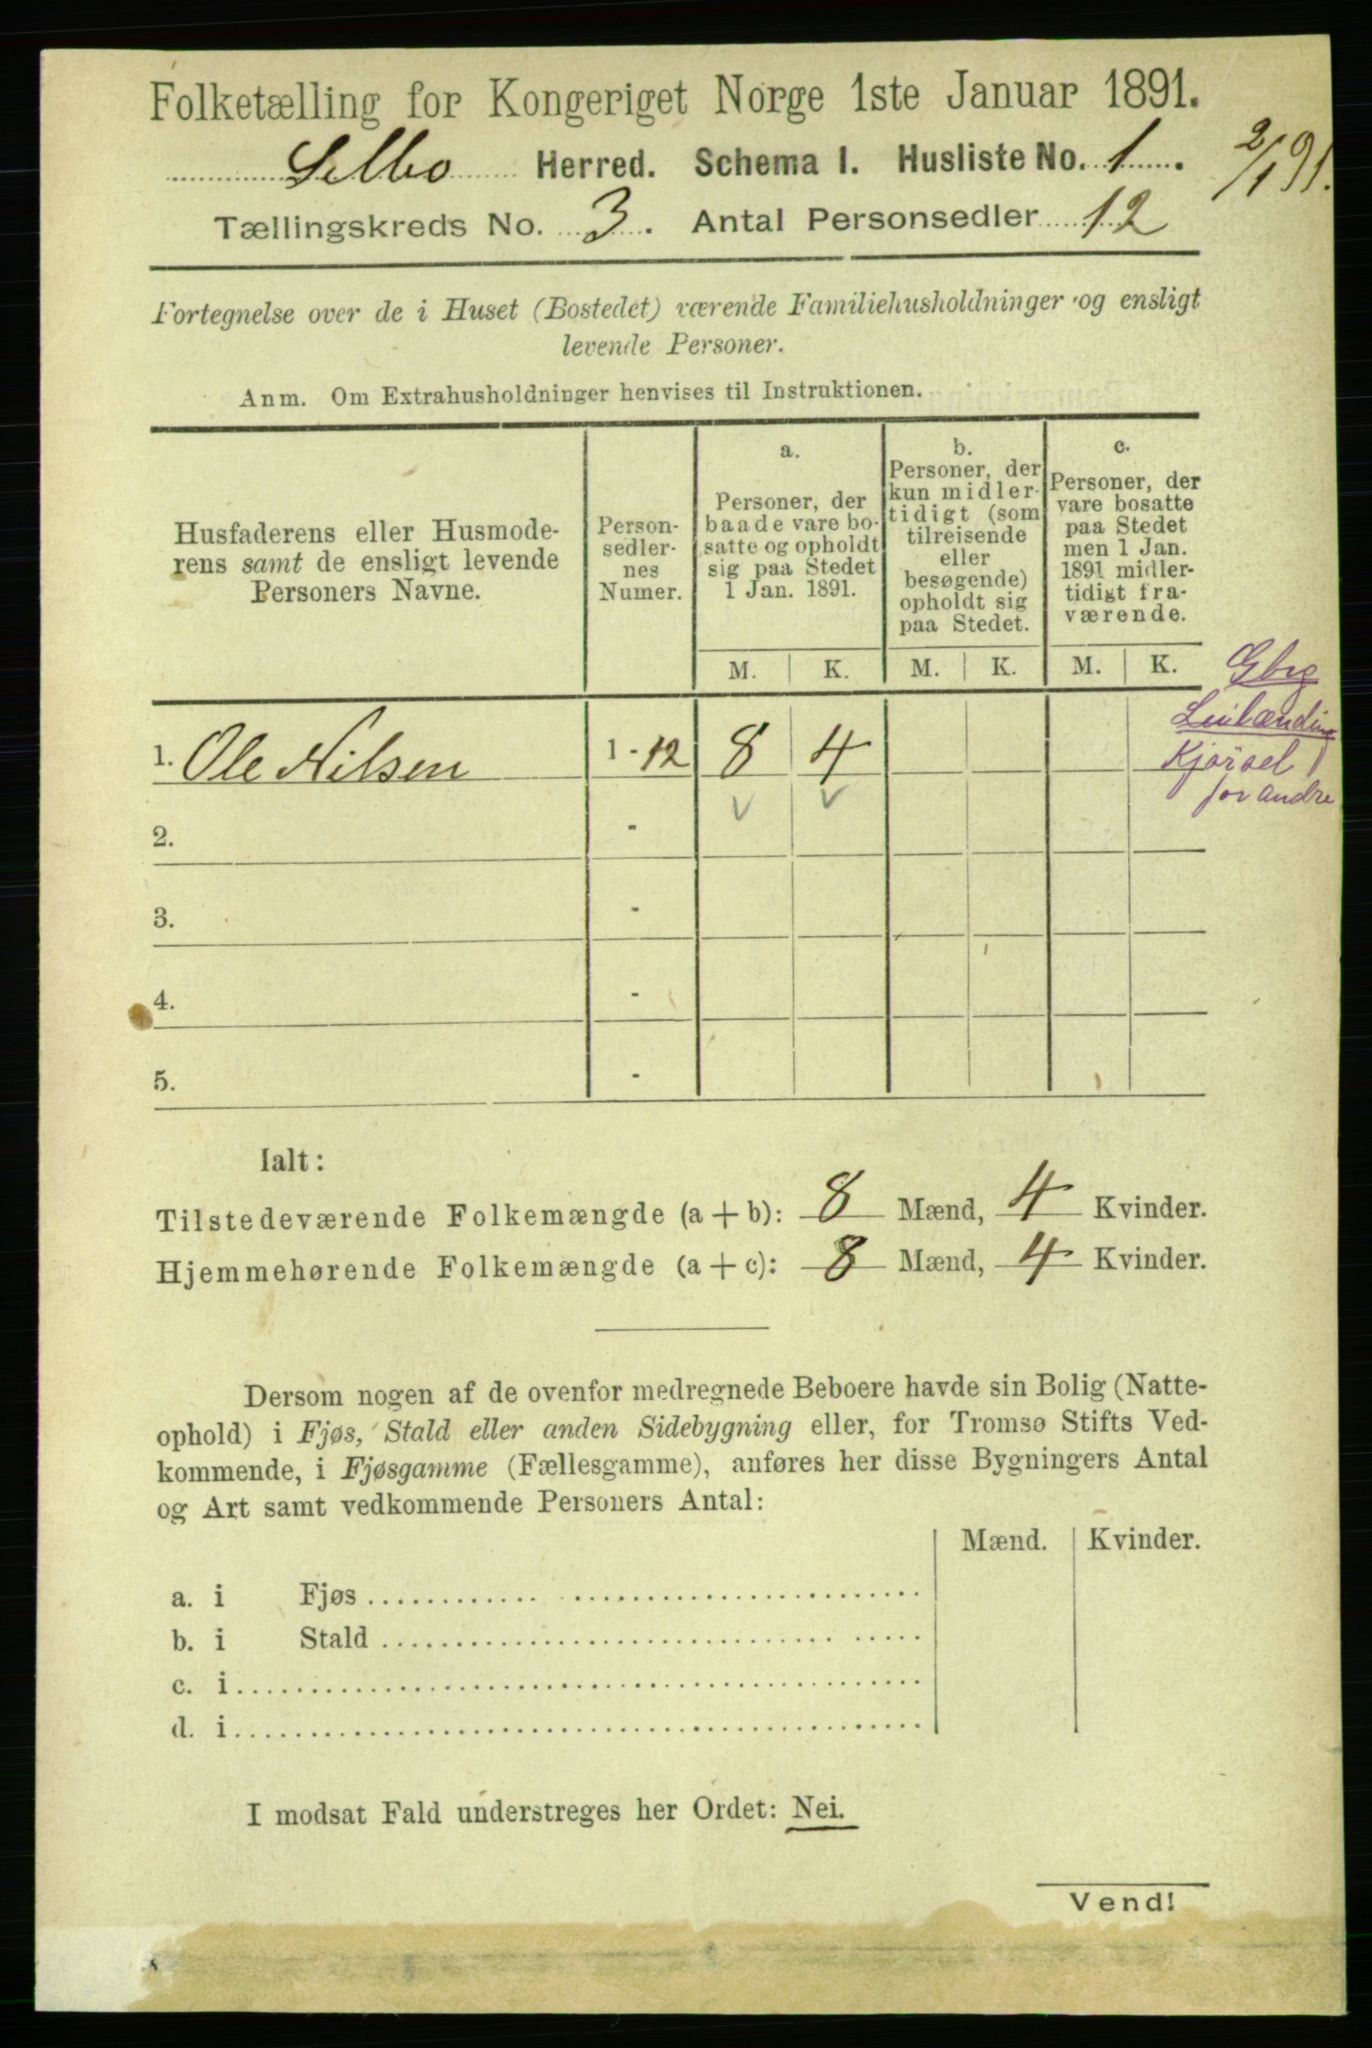 Folketælling for Kongeriget Norge 1ste Januar 1891.
Selbo Herred. Schema I. Husliste No. 1. 2/1 91.
Tællingskreds No. 3. Antal Personsedler 12
Fortegnelse over de i Huset (Bostedet) værende Familiehusholdninger og ensligt
levende Personer.
Anm. Om Extrahusholdninger henvises til Instruktionen.
Husfaderens eller Husmode-
rens samt de ensligt levende
Personers Navne.
Person-
sedler-
nes
Numer.
a.
Personer, der
baade vare bo-
satte og opholdt
sig paa Stedet
1 Jan. 1891.
b.
Personer, der
kun midler-
tidigt (som
tilreisende
eller
besøgende)
opholdt sig
paa Stedet.
c.
Personer, der
vare bosatte
paa Stedet
men 1 Jan.
1891 midler-
tidigt fra-
værende.
M. K. M. K. M. K.
Gbrg
Leilænding
Kjørsel
for andre
1. Ole Nilsen 1-12 8 4
2. -
3. -
4. -
5. -
Ialt:
Tilstedeværende Folkemængde (a + b): 8 Mænd, 4 Kvinder.
Hjemmehørende Folkemængde (a + c): 8 Mænd, 4 Kvinder.
Dersom nogen af de ovenfor medregnede Beboere havde sin Bolig (Natte-
ophold) i Fjøs, Stald eller anden Sidebygning eller, for Tromsø Stifts Ved-
kommende, i Fjøsgamme (Fællesgamme), anføres her disse Bygningers Antal
og Art samt vedkommende Personers Antal:
Mænd. Kvinder.
a. i Fjøs
b. i Stald
c. i
d. i
I modsat Fald understreges her Ordet: Nei.
Vend!